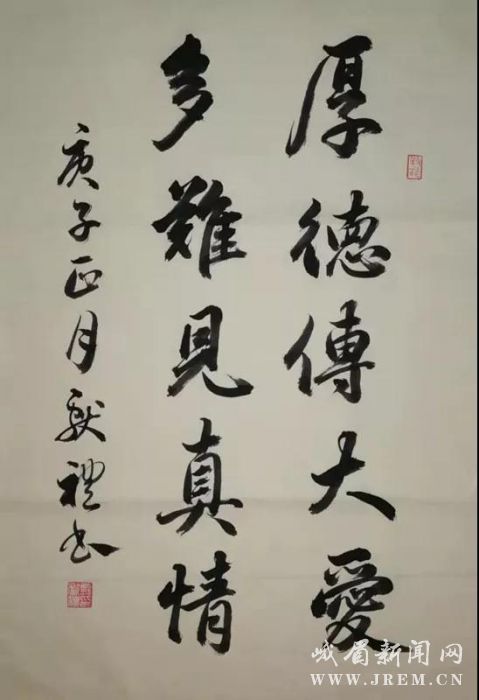 厚德傳大愛
多難見真情
庚子正月獻禮书
峨眉新闻网
WWW.JREM.CN